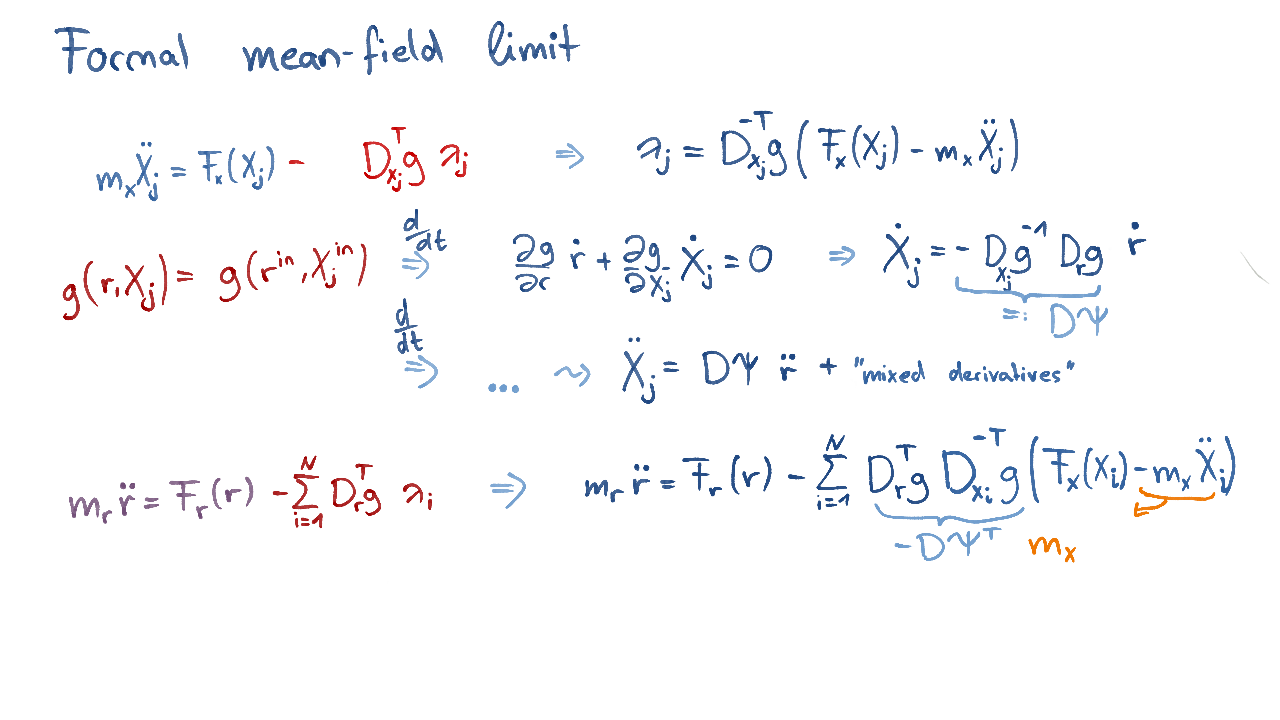 Formal mean-field limit
m_x Ẍ_j = F_x(X_j) - D_{x_j}^T g λ_j ⇒ λ_j = D_{x_j}^{-T} g (F_x(X_j) - m_x Ẍ_j)
g(r, X_j) = g(r^{in}, X_j^{in}) d/dt ⇒ ∂g/∂r ṙ + ∂g/∂X_j Ẋ_j = 0 ⇒ Ẋ_j = - D_{x_j} g^{-1} D_r g ṙ
=: DΨ
d/dt ⇒ ... ⇝ Ẍ_j = DΨ r̈ + "mixed derivatives"
m_r r̈ = F_r(r) - ∑_{i=1}^N D_r^T g λ_i ⇒ m_r r̈ = F_r(r) - ∑_{i=1}^N D_r^T g D_{x_i}^{-T} g (F_x(X_i) - m_x Ẍ_i)
-DΨ^T m_x